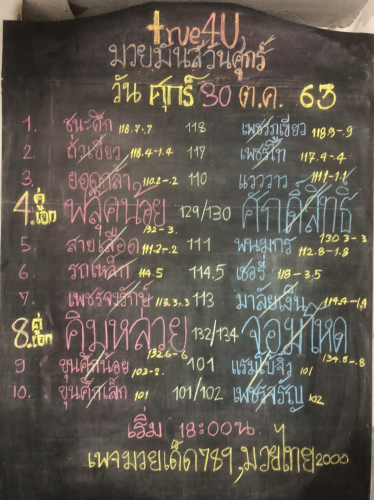 true4U
มวยมันส์วันศุกร์
วัน ศุกร์ 30 ต.ค. 63
1. ชนะศึก 118.7-.7 118 เพชรภูเขียว 118.9-.9
2. ถ้ำเขียว 118.4-1.4 117 เพชรโท 117.4-.4
3. ยอดกุลา 110.2-.2 110 แวววาว 111.1-1.1
4. คู่เอก พลุคน้อย 132-3. 129/130 ศักดิ์สิทธิ์ 130.3-3
5. สายเลือด 111.2-.2 111 พนมกร 112.8-1.8
6. รถเหล็ก 114.5 114.5 เชอรี่ 118-3.5
7. เพชรจงรักษ์ 116.3.3 113 มาลัยเงิน 114.4-1.4
8. คู่เอก คิมหลวย 132.6-.6 132/134 จอมโหด 134.8-.8
9 ขุนศึกน้อย 103-2. 101 101
10. ขุนศึกเล็ก 101 101/102 เพชรจรัญ 102
เริ่ม 18:00น.
เพจมวยเด็ด789,มวยไทย2000